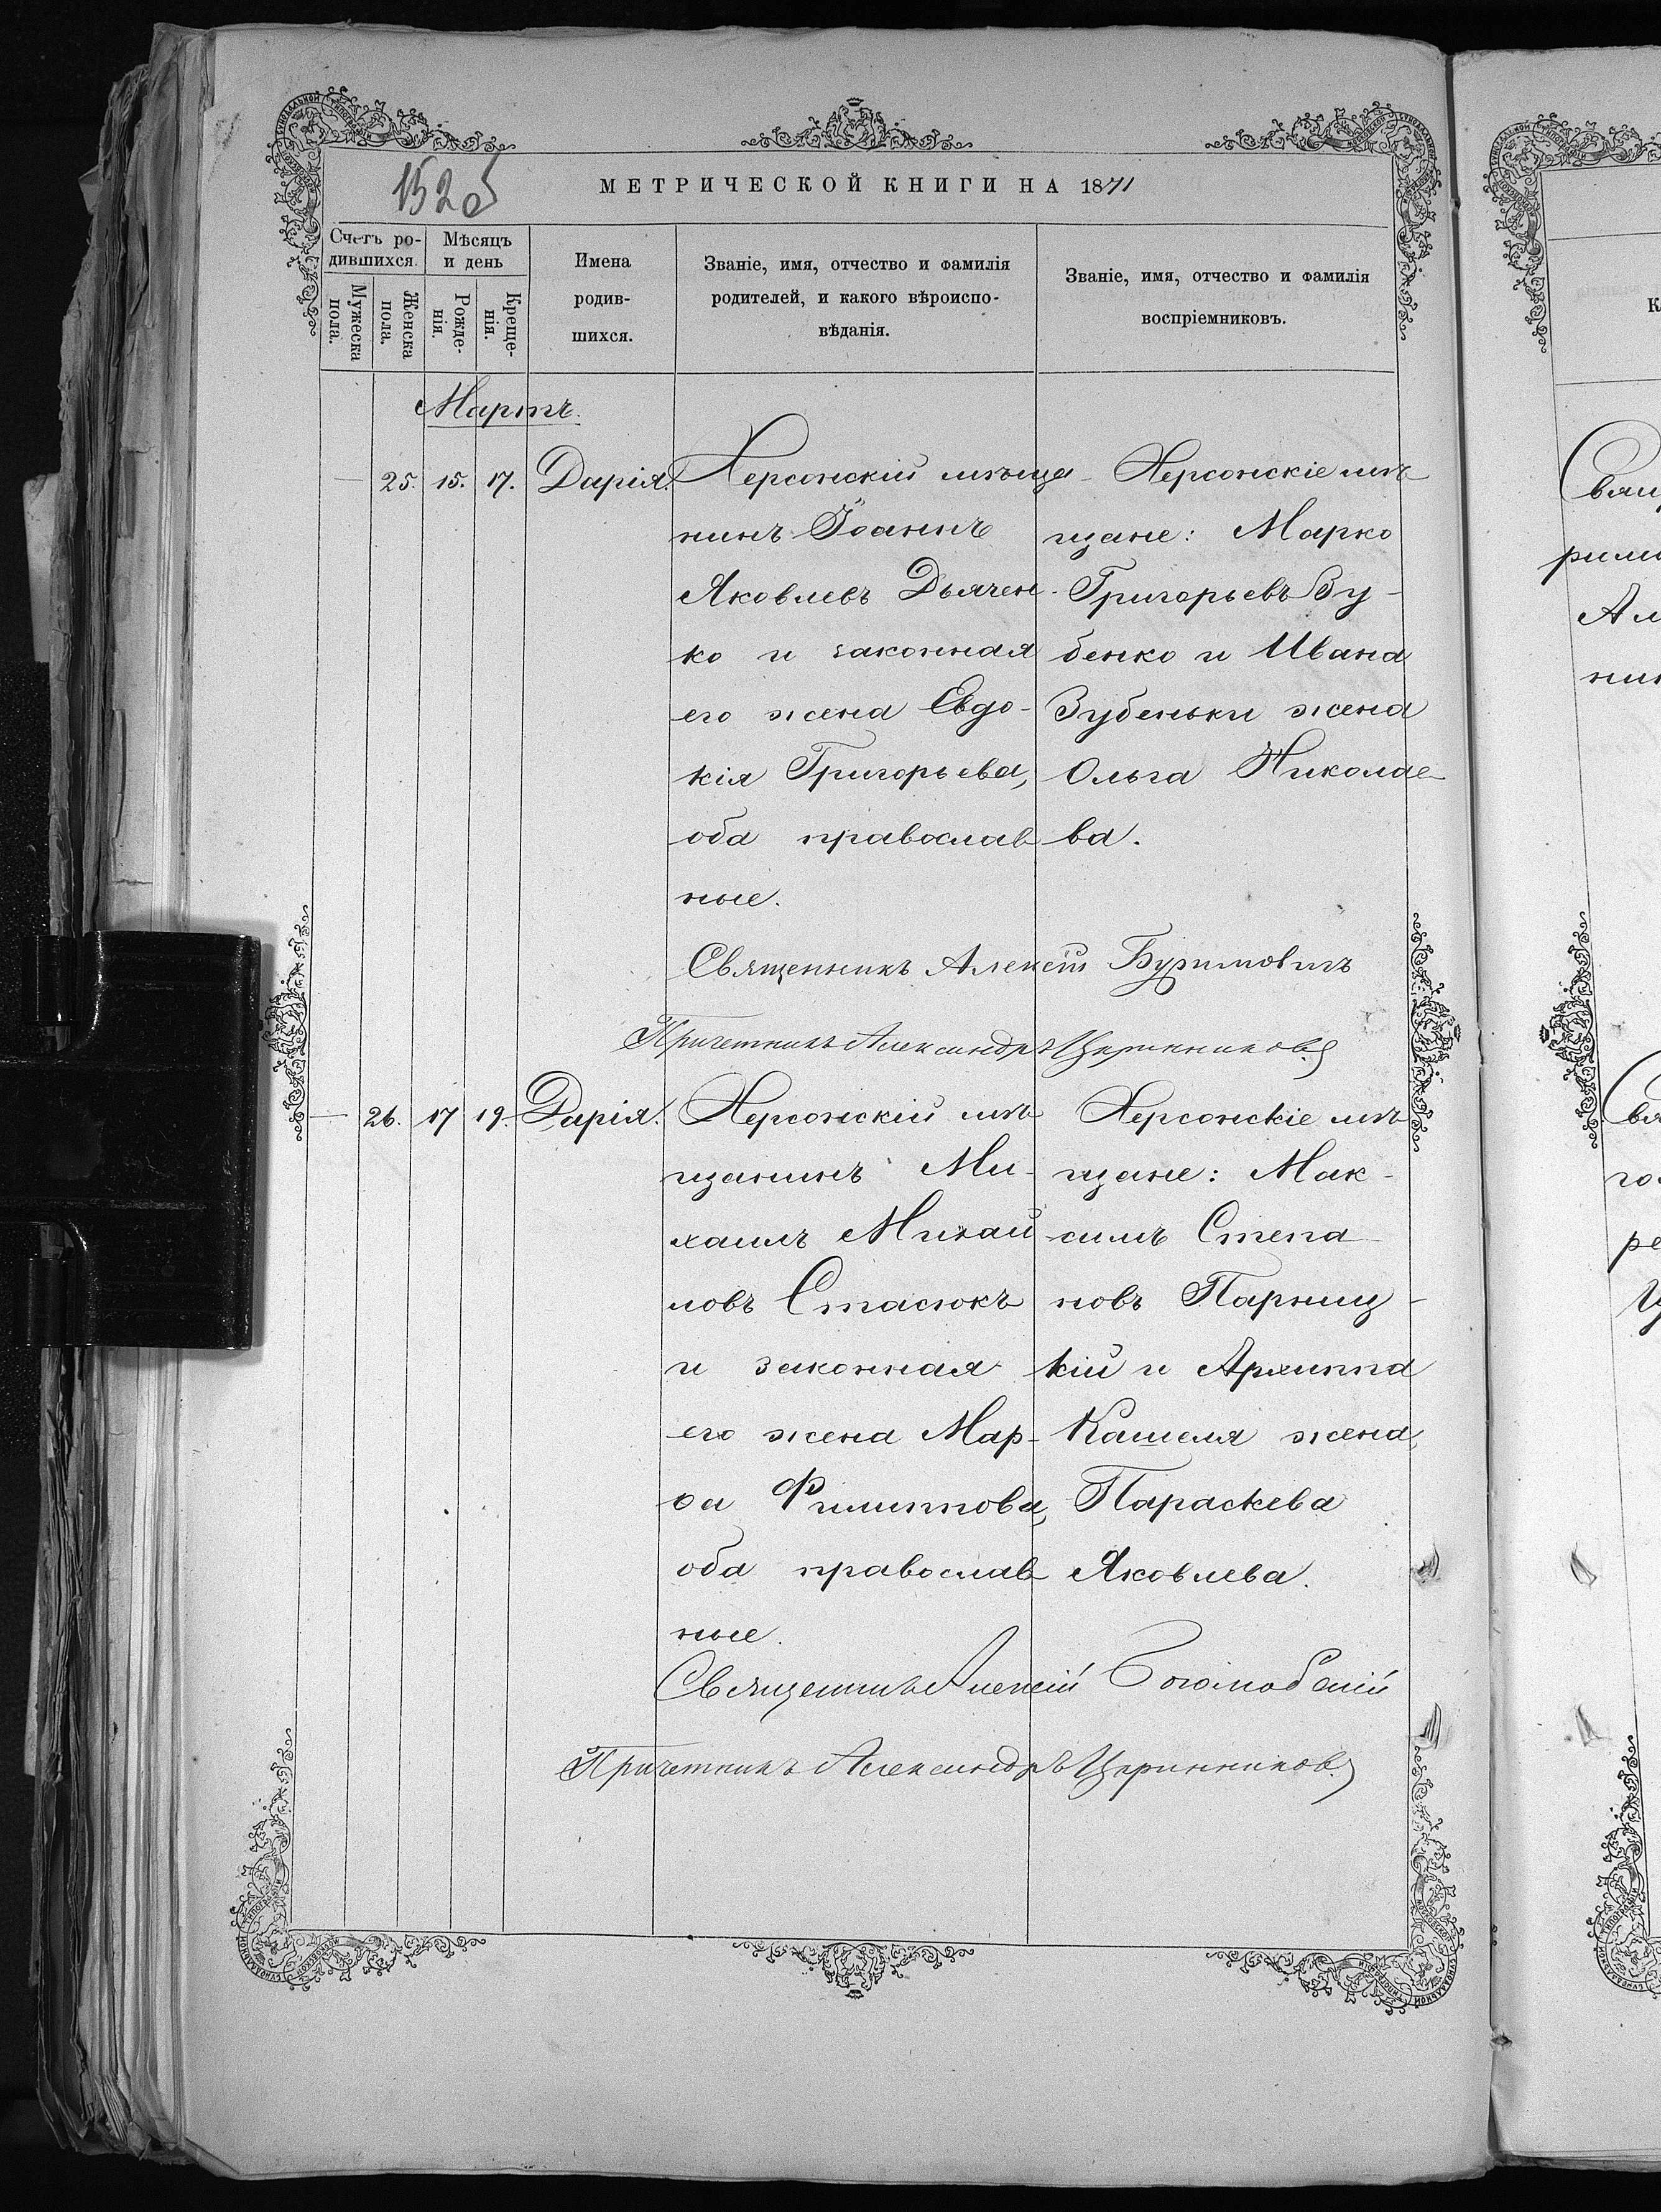 152 об
МЕТРИЧЕСКОЙ КНИГИ НА 1871
Счетъ ро-
дившихся.
Мѣсяцъ
и день
Мужеска
пола.
Женска
пола.
Рожде-
нія.
Креще-
нія.
Имена
родив-
шихся.
Званіе, имя, отчество и фамилія
родителей, и какого вѣроиспо-
вѣданія.
Званіе, имя, отчество и фамилія
воспріемниковъ.
Мартъ.
— 25. 15. 17. Дарія.
Херсонскій мѣща-
нинъ Іоаннъ
Яковлевъ Дьячен-
ко и законная
его жена Евдо-
кія Григорьева,
оба православ
ные.
Херсонскіе мѣ
щане: Марко
Григорьевъ Зу-
бенко и Ивана
Зубеньки жена
Ольга Николае
ва.
Священникъ Алексій
Причетникъ Александръ
— 26. 17 19. Дарія.
Херсонскій мѣ
щанинъ Ми-
хаилъ Михай
ловъ Стасюкъ
и законная
его жена Мар-
ѳа Филиппова,
оба православ
ные.
Херсонскіе мѣ
щане: Мак-
симъ Степа
новъ Парниц-
кій и Архиппа
Кашеля жена,
Параскева
Яковлева.
Священникъ Алексій
Причетникъ Александръ